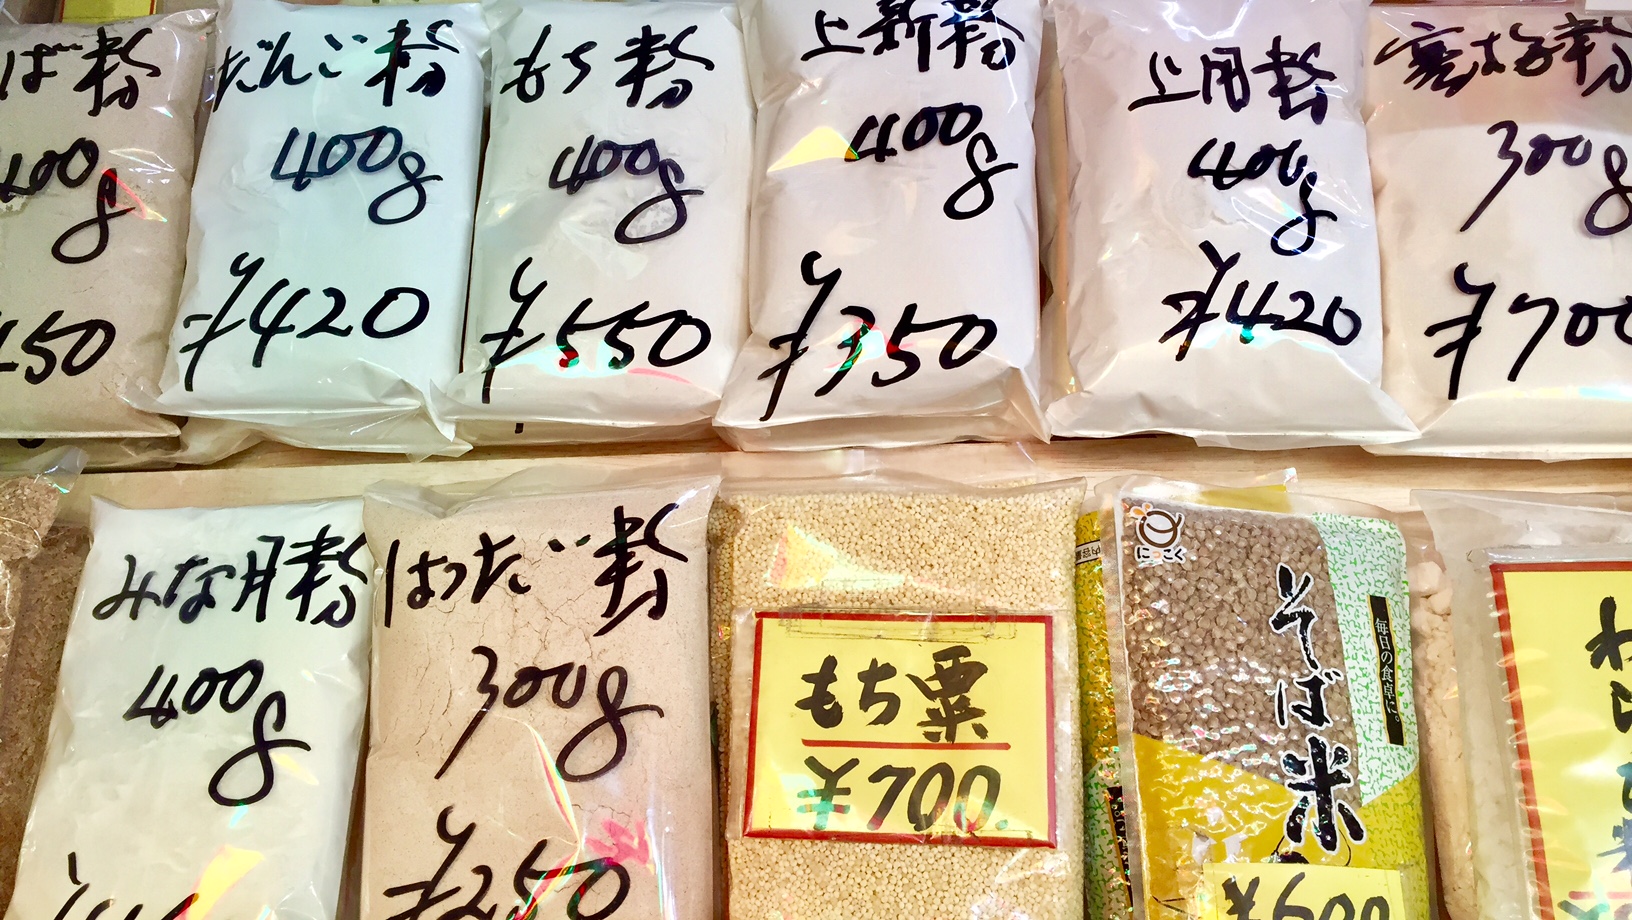 ば粉
400g
450
だんご粉
400g
¥420
もち粉
400g
¥550
上新粉
400g
¥350
上用粉
400g
¥420
寒梅粉
300g
¥700
みな月粉
400g
はったい粉
300g
¥250
もち粟
¥700
にっこく
そば米
毎日の食卓に。
¥600